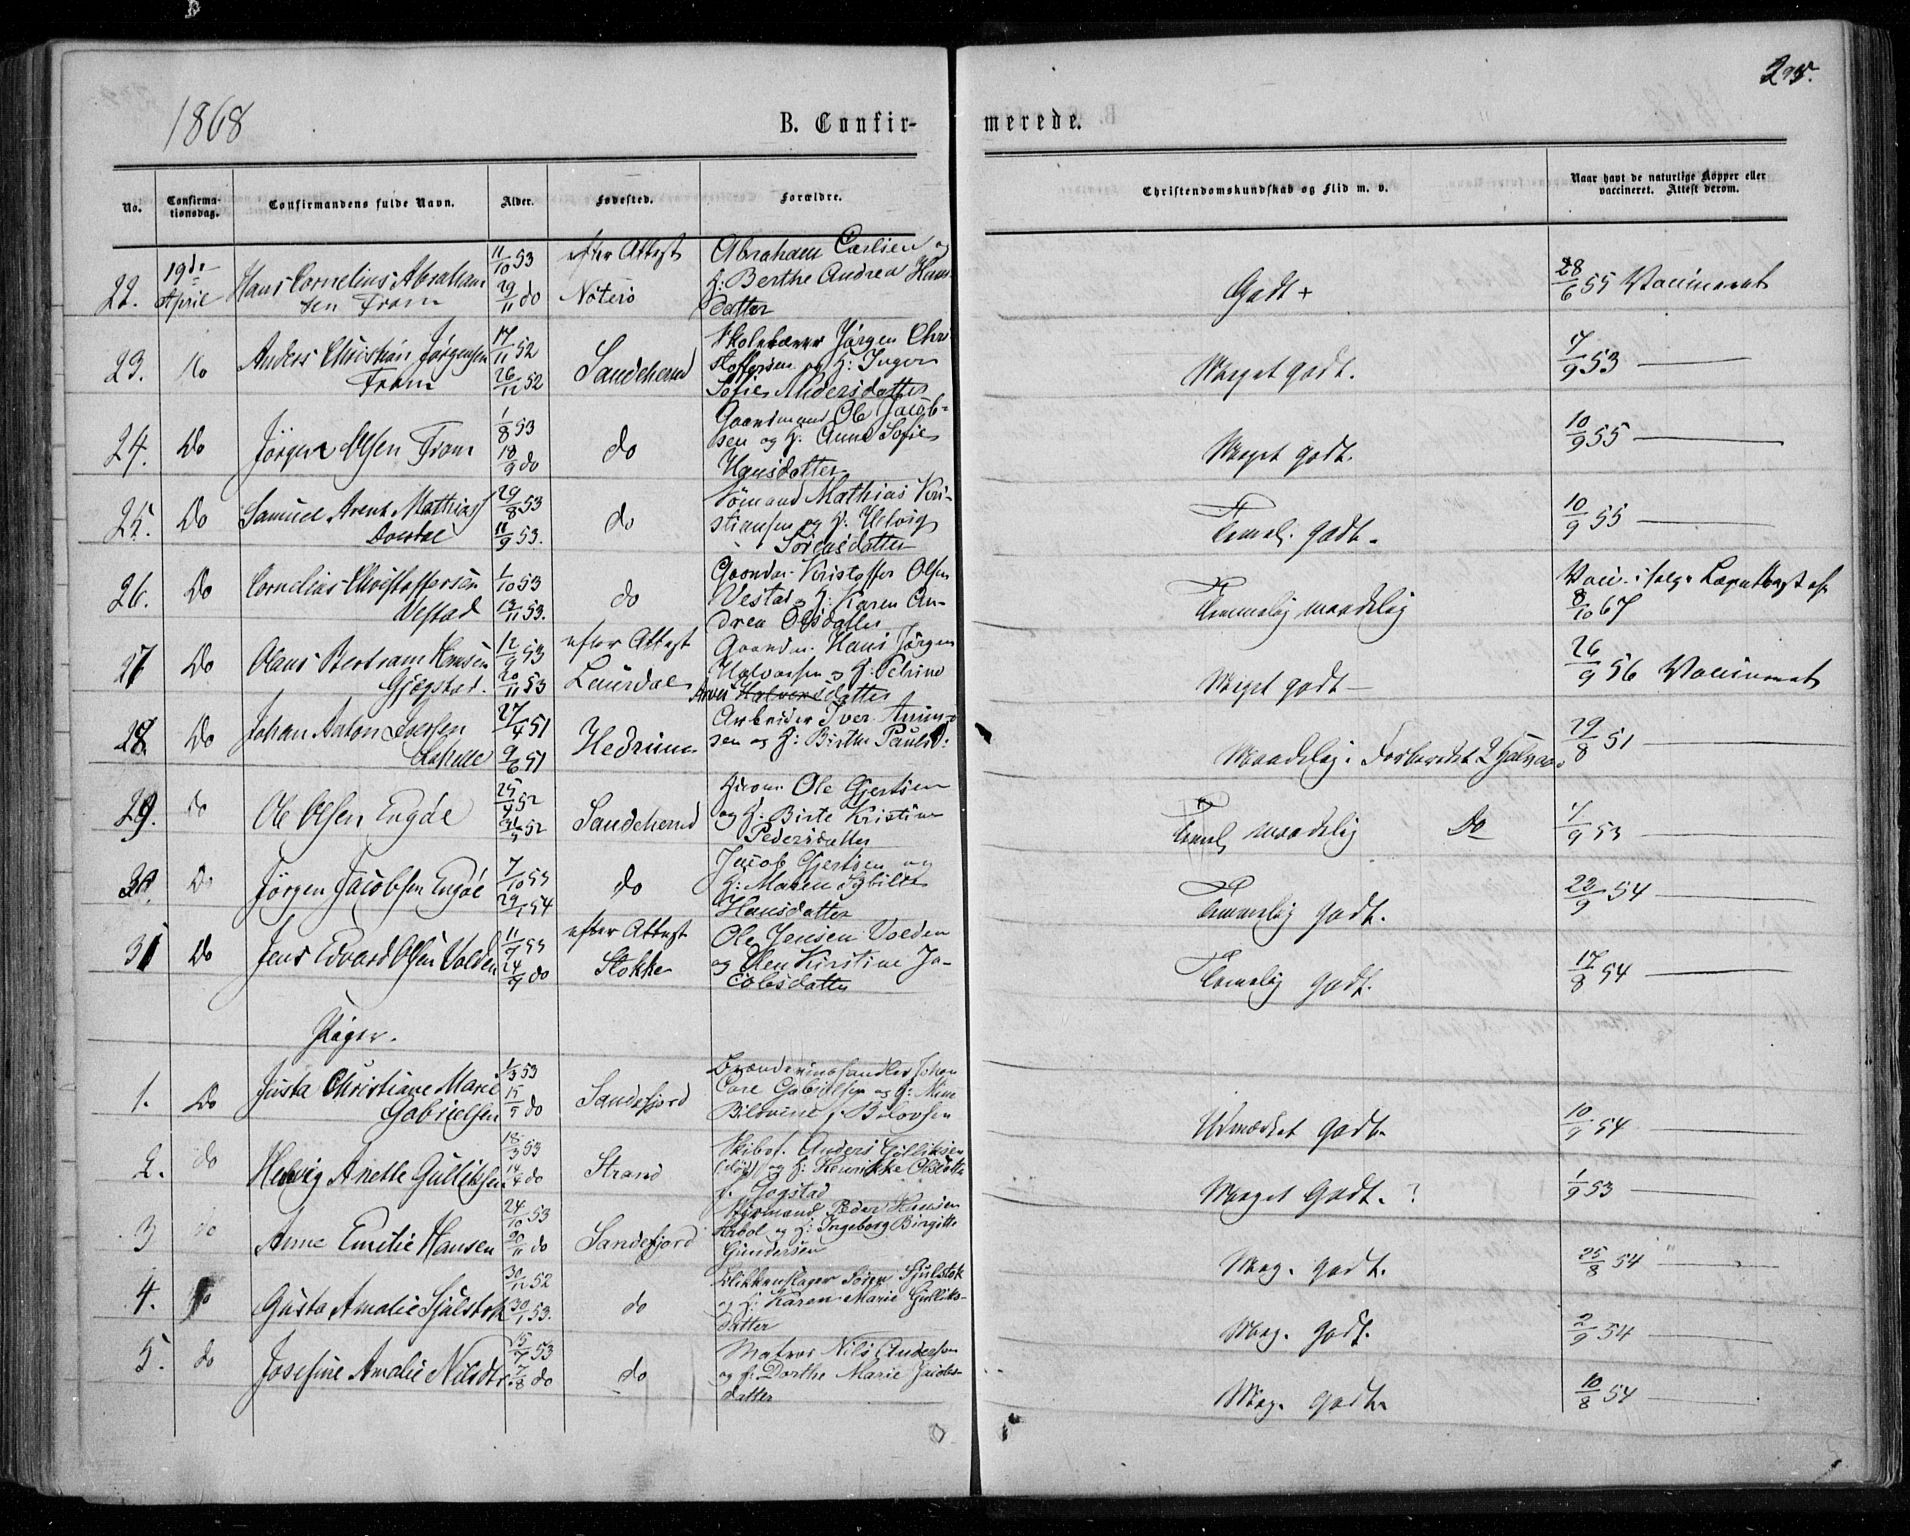 1868
B. Confirmerede.
No. Confirmationsdag. Confirmandens fulde Navn. Alder. Fødested. Forældre. Christendomskundskab og Flid m. v. Naar havt de naturlige Kopper eller vaccineret. Attest derom.
22. 19de April Hans Cornelius Abrahamsen Fram 11/10 53 29/11 do efter Attest Nøterø Abraham Carlsen og H: Berthe Andrea Hansdatter Godt + 28/6 55 Vaccineret
23. Do Anders Christian Jørgensen Fram 17/11 52 26/12 52 Sandeherred Skolelærer Jørgen Christoffersen og H: Inger Sofie Andersdatter Meget godt. 7/9 53 —
24. Do Jørgen Olsen Fram 1/8 53 18/9 do do Gaardmand Ole Jacobsen og H. Anne Sofie Hansdatter Meget godt. 10/9 55 —
25. Do Samuel Arent Mathias 29/8 53 11/9 53. do Sømand Mathias Kristiansen og H. Helvig Sørensdatter Temel. godt. 10/9 55 —
26. Do Cornelius Christoffersen Vestad 1/10 53 13/11 53. do Gaardm. Kristoffer Olsen Vestad og H: Karen Andrea Olsdatter Temmelig maadelig Vacc. i følge Lægeattest af 8/10 67
27 Do Olaus Bertram Hansen Gjøgstad. 12/9 53 20/11 53 efter Attest Laurdal Gaardm. Hans Jørgen Halvorsen og H: Petrine Halvorsdatter Meget godt — 26/9 56 Vaccineret
28. Do Johan Anton Iversen 27/4 51 9/6 51 Hedrum Arbeider Iver Amundsen og H: Birthe Paulsd: Maadelig. Forberedt 2 Halvaar 29/8 51 —
29. do Ole Olsen Engøe 25/4 52 31/5 52 Sandeherred Ole Gjertsen og H. Birte Kristine Pedersdatter Temel maadelig Do 1/9 53 —
30. Do Jørgen Jacobsen Engøe 7/10 53 29/1 54 do Jacob Gjertsen og H: Maren Sybille Hansdatter Temmelig godt. 22/9 54 —
31 Do Jens Edvard Olsen Volden 11/7 53 24/9 do efter Attest Stokke Ole Jensen Volden og Elen Kirstine Jacobsdatter Temelig godt. 17/8 54 —
Piger.
1. Do Justa Christiane Marie Gabrielsen 1/3 53 15/5 do Sandefjord Brændeviinshandler Johan Carl Gabrielsen og H: Mine Gabrielsen Udmærket godt. 10/9 54 —
2. do Helvig Anette Gulliksen 18/3 53 14/4 do Strand Skibsf. Anders Gulliksen og H: Henrikke Olsdatter f. Jogstad Meget Godt. ? 1/9 53 —
3 do Anne Emilie Hansen 24/10 53 20/11 do Sandefjord Styrmand Peder Hansen og H: Ingeborg Birgitte Gundersen Meg. godt. 25/8 54 " "
4. Do Gusta Amalie Sjulstok 30/12 52 30/1 53. do Blikkenslager Søren Sjulstok og H: Karen Marie Gulliksdatter Meg. godt. 2/9 54 —
5. do Josefine Amalie Nilsdtr. 15/7 53 7/8 do do Matros Nils Andersen og H: Dorthe Marie Jacobsdatter Meg. godt. 10/8 54 —